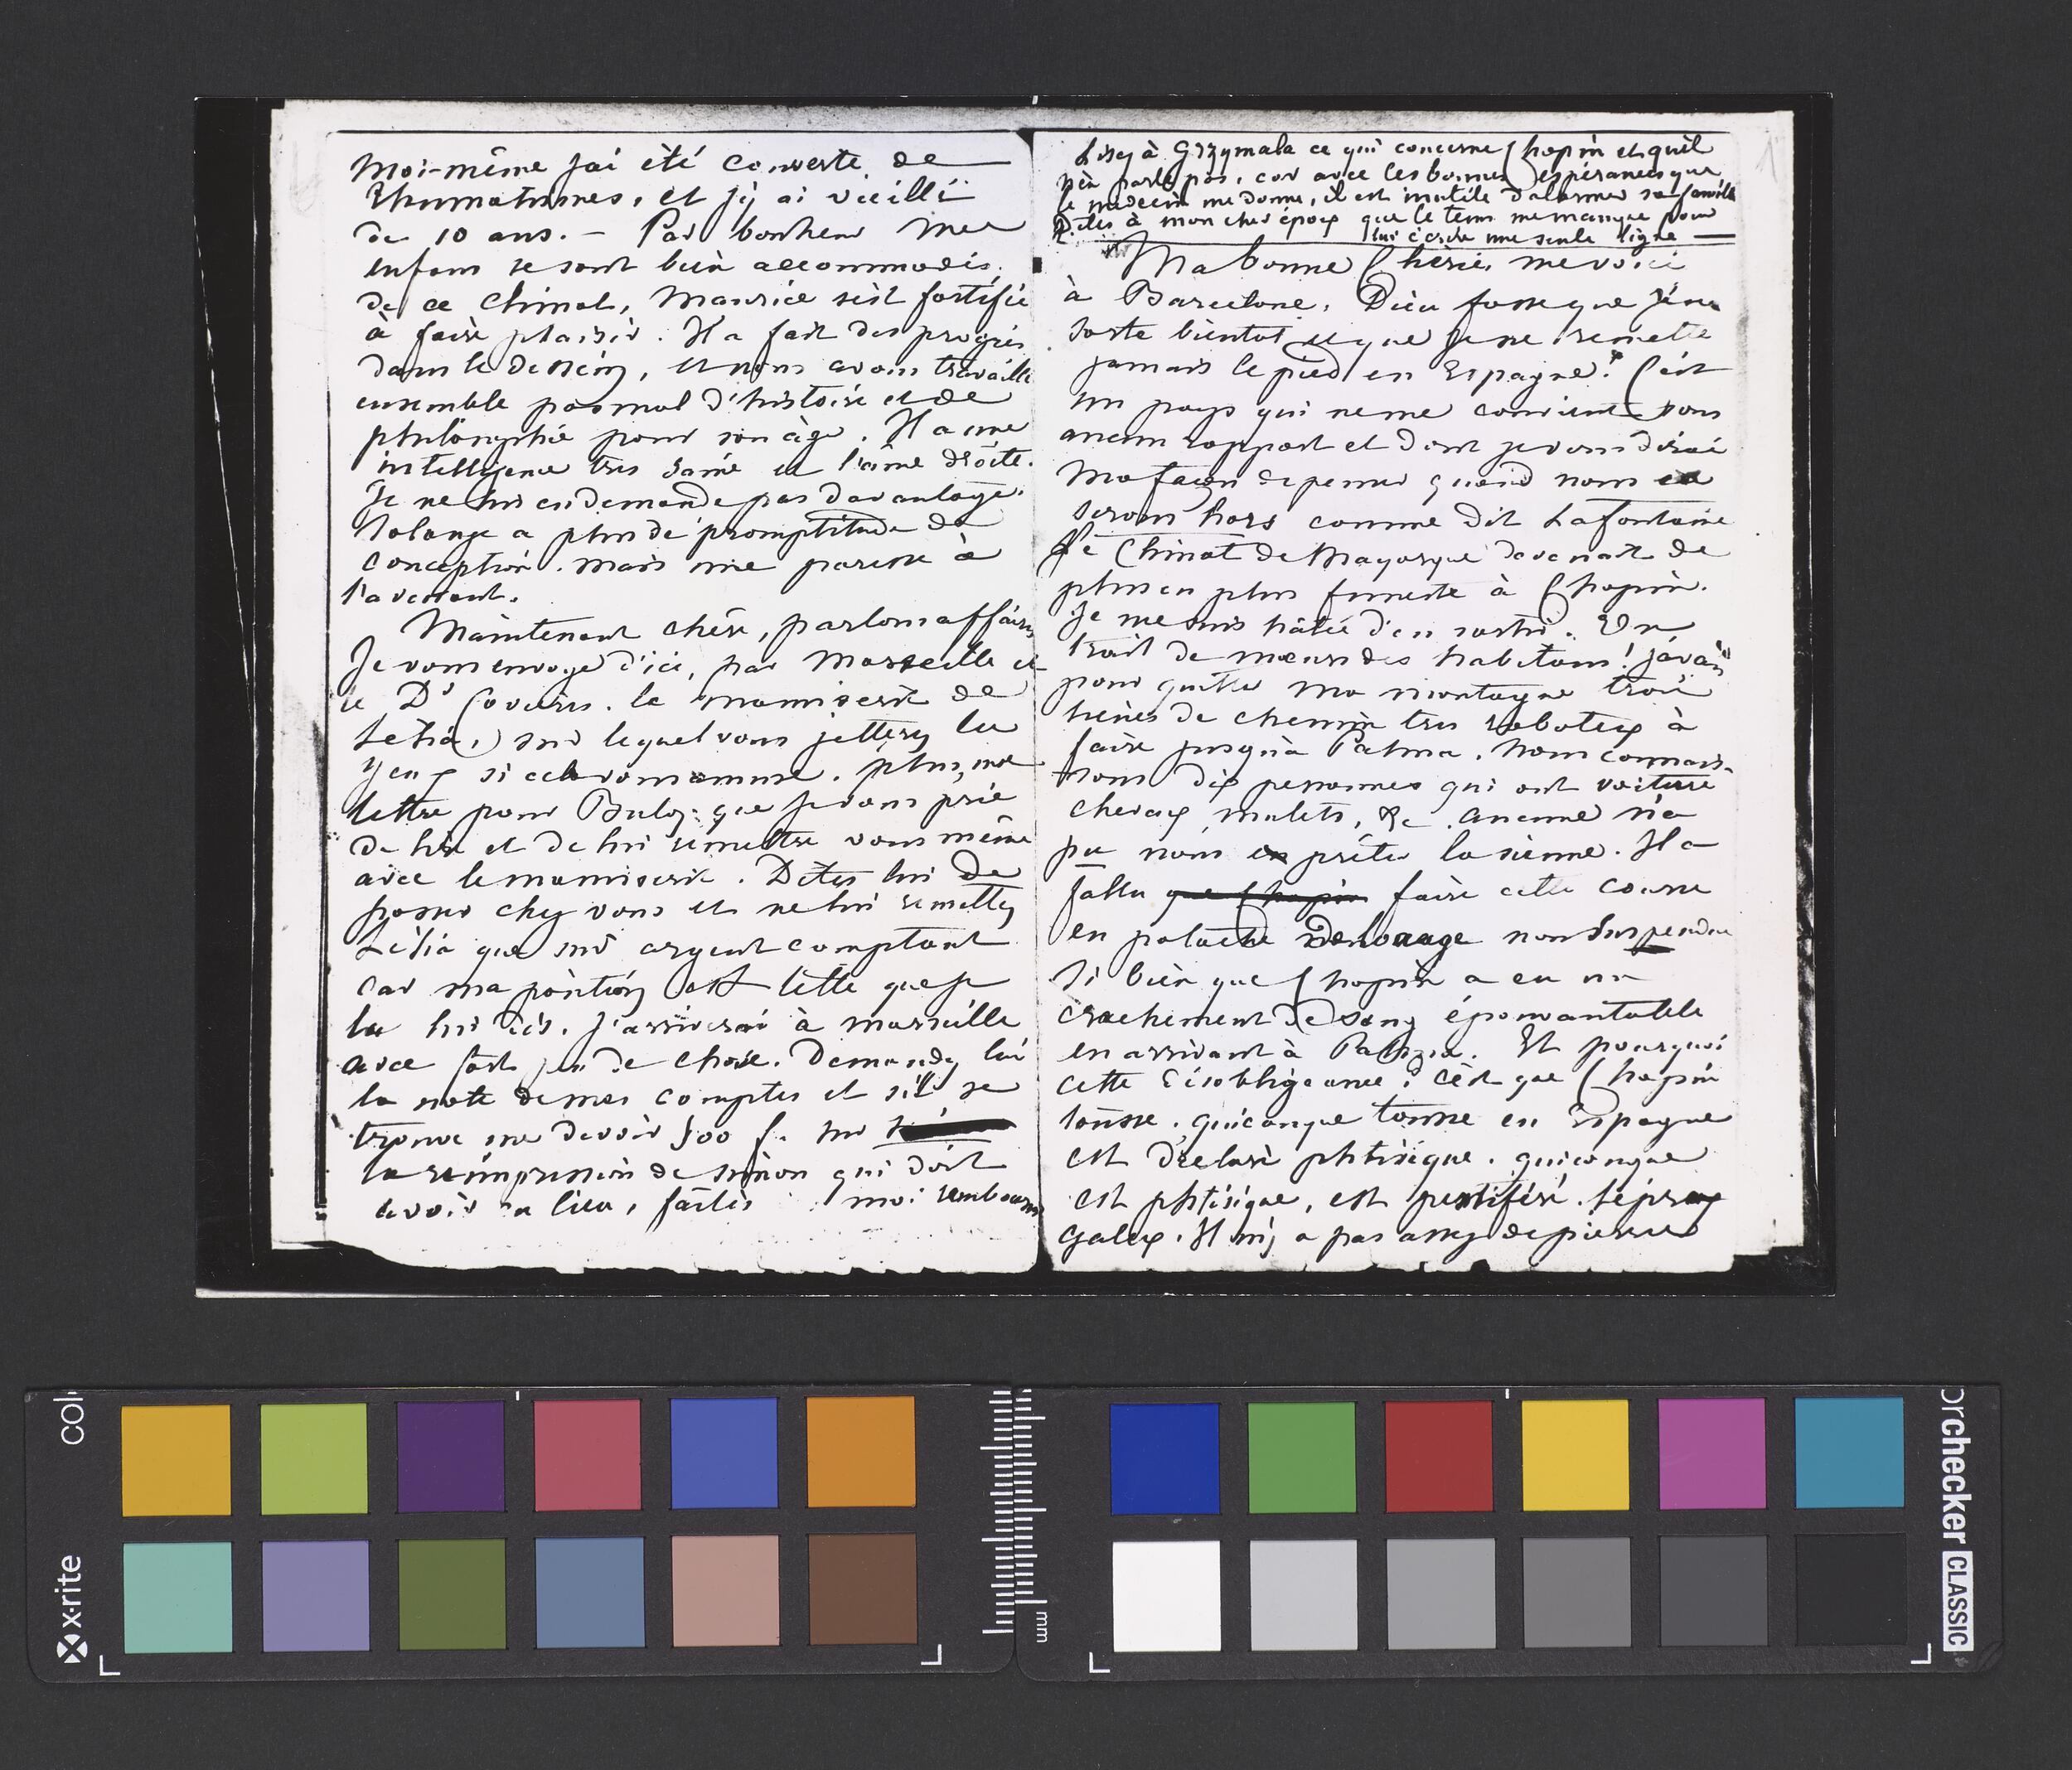 Moi-même j'ai été couverte de
Rhumatismes, et j'y ai vieilli
de 10 ans. – Par bonheur mes
enfans se sont bien accommodés
de ce climat, Maurice s'est fortifié
à faire plaisir. Il a fait des progrès
dans le dessein, et nous avons travaillé
ensemble pas mal d'histoire et de
philosophie pour son âge. Il a une
intelligence très saine et l'âme droite.
Je ne lui en demande pas davantage.
Solange a plus de promptitude de
conception. mais une paresse à
l'avenant.
Maintenant chère, parlons affaires
Je vous envoye d'ici, par Marseille et
le Dr Covières. le manuscrit de
Lelia, sur lequel vous jetterez les
yeux si cela vous amuse. plus, une
lettre pour Buloz que je vous prie
de lire et de lui remettre vous même
avec le manuscrit. Dites lui de
passer chez vous et ne lui remettez
Lélia que sur argent comptant
car ma position est telle que je
la lui dis. J'arriverai à Marseille
avec fort peu de chose. Demandez lui
la note de mes comptes et s'il se
trouve me devoir 500 f. sur
la réimpression de Simon qui doit
avoir eu lieu, faites moi rembourser
Lisez à Grzymala ce qui concerne Chopin et qu'il
n'en parle pas, car avec les bonnes espérances que
le médecin me donne, il est inutile d'alarmer sa famille
Dites à mon cher époux que le tems me manque pour
lui écrire une seule ligne —
Ma bonne Chérie, me voici
à Barcelone. Dieu fasse que j'en
sorte bientot et que je ne remette
jamais le pied en Espagne! C'est
un pays qui ne me convient sous
aucun rapport et dont je vous dirai
ma façon de penser quand nous en
serons hors comme dit Lafontaine
Le Climat de Mayorque devenait de
plus en plus funeste à Chopin.
Je me suis hâtée d'en sortir. Un
trait de mœurs des habitans! j'avais
pour quitter ma montagne trois
lieues de chemin très raboteux à
faire jusqu'à Palma. Nous connais-
sons dix personnes qui ont voiture
chevaux, mulets, &c. aucune n'a
pu nous en prêter la sienne. Il a
fallu que Chopin faire cette course
en patache de louage non suspendue
Si bien que Chopin a eu un
crachement de sang épouvantable
en arrivant à Palma. Et pourquoi
cette désobligeance? c'est que Chopin
tousse. quiconque tousse en Espagne
est déclaré phtisique. quiconque
est phtisique, est pestiféré. lépreux
galeux. Il n'y a pas assez de pierres